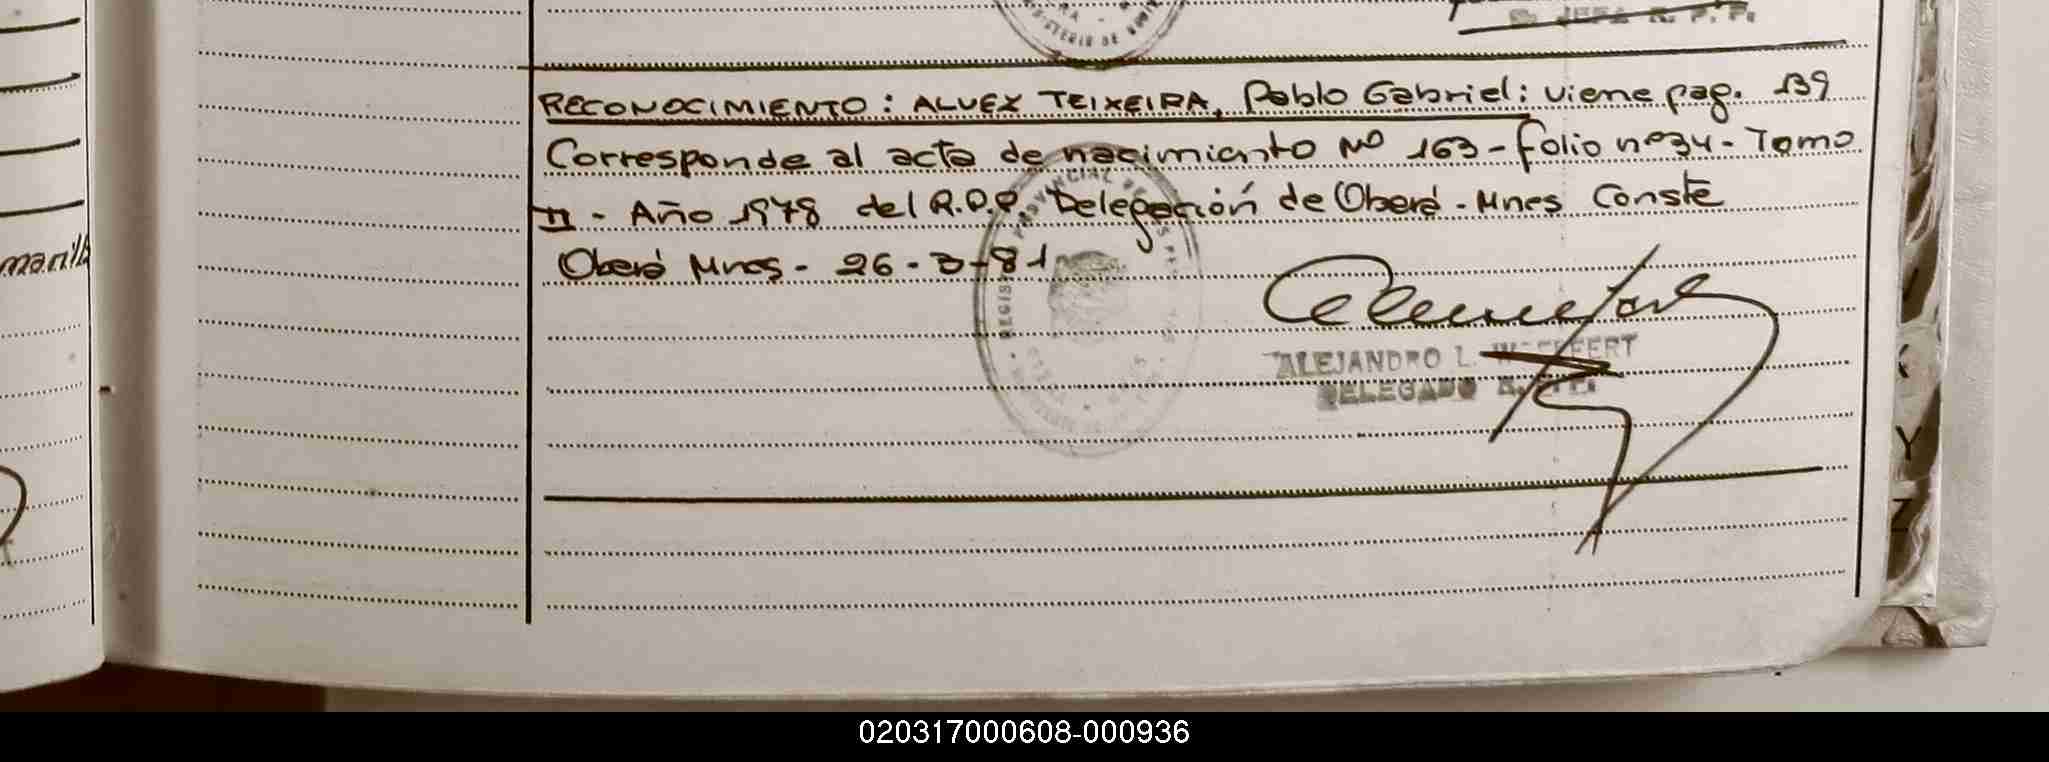 MINISTERIO DE
S. JEFA R. P. P.
RECONOCIMIENTO: ALVEZ TEIXEIRA, Pablo Gabriel: viene pag. 139
Corresponde al acta de nacimiento Nº 163 - folio nº 34 - Tomo
II - Año 1978 del R.P.P. Delegación de Oberá - Mnes Conste
Oberá Mnes - 26-3-81
PROVINCIAL DE LAS
REGIS
ALEJANDRO L.
DELEGADO R. P. P.
manif
Y
Z
020317000608-000936